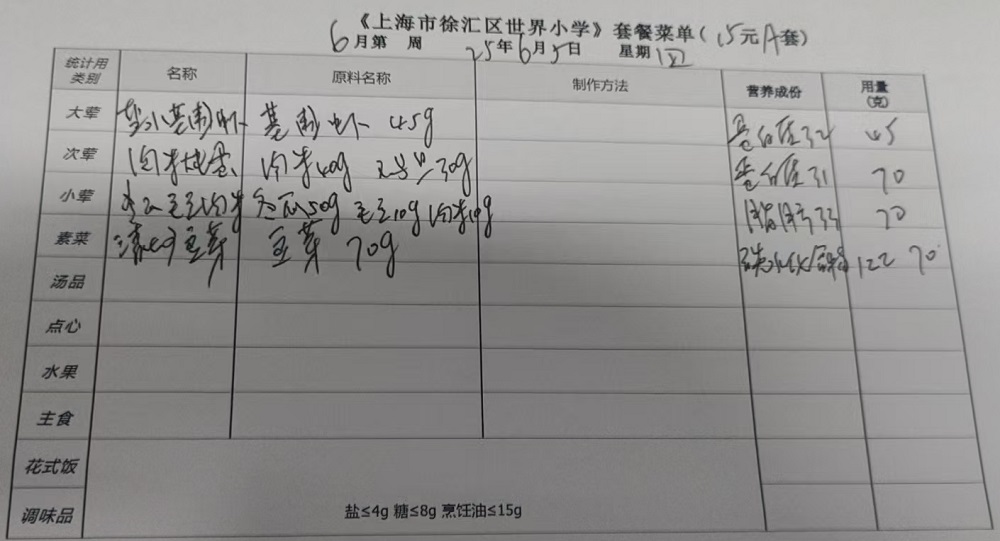 《上海市徐汇区世界小学》套餐菜单（15元A套）
6月第 周 25年6月5日 星期四
统计用类别 名称 原料名称 制作方法 营养成份 用量（克）
大荤 盐水基围虾 基围虾 45g 蛋白质32 45
次荤 肉米炖蛋 肉米40g 30g 蛋白质31 70
小荤 毛豆肉米 50g 毛豆10g 肉米10g 脂肪 33 70
素菜 清炒豆芽 豆芽 70g 碳水化合物122 70
汤品
点心
水果
主食
花式饭
调味品 盐≤4g 糖≤8g 烹饪油≤15g